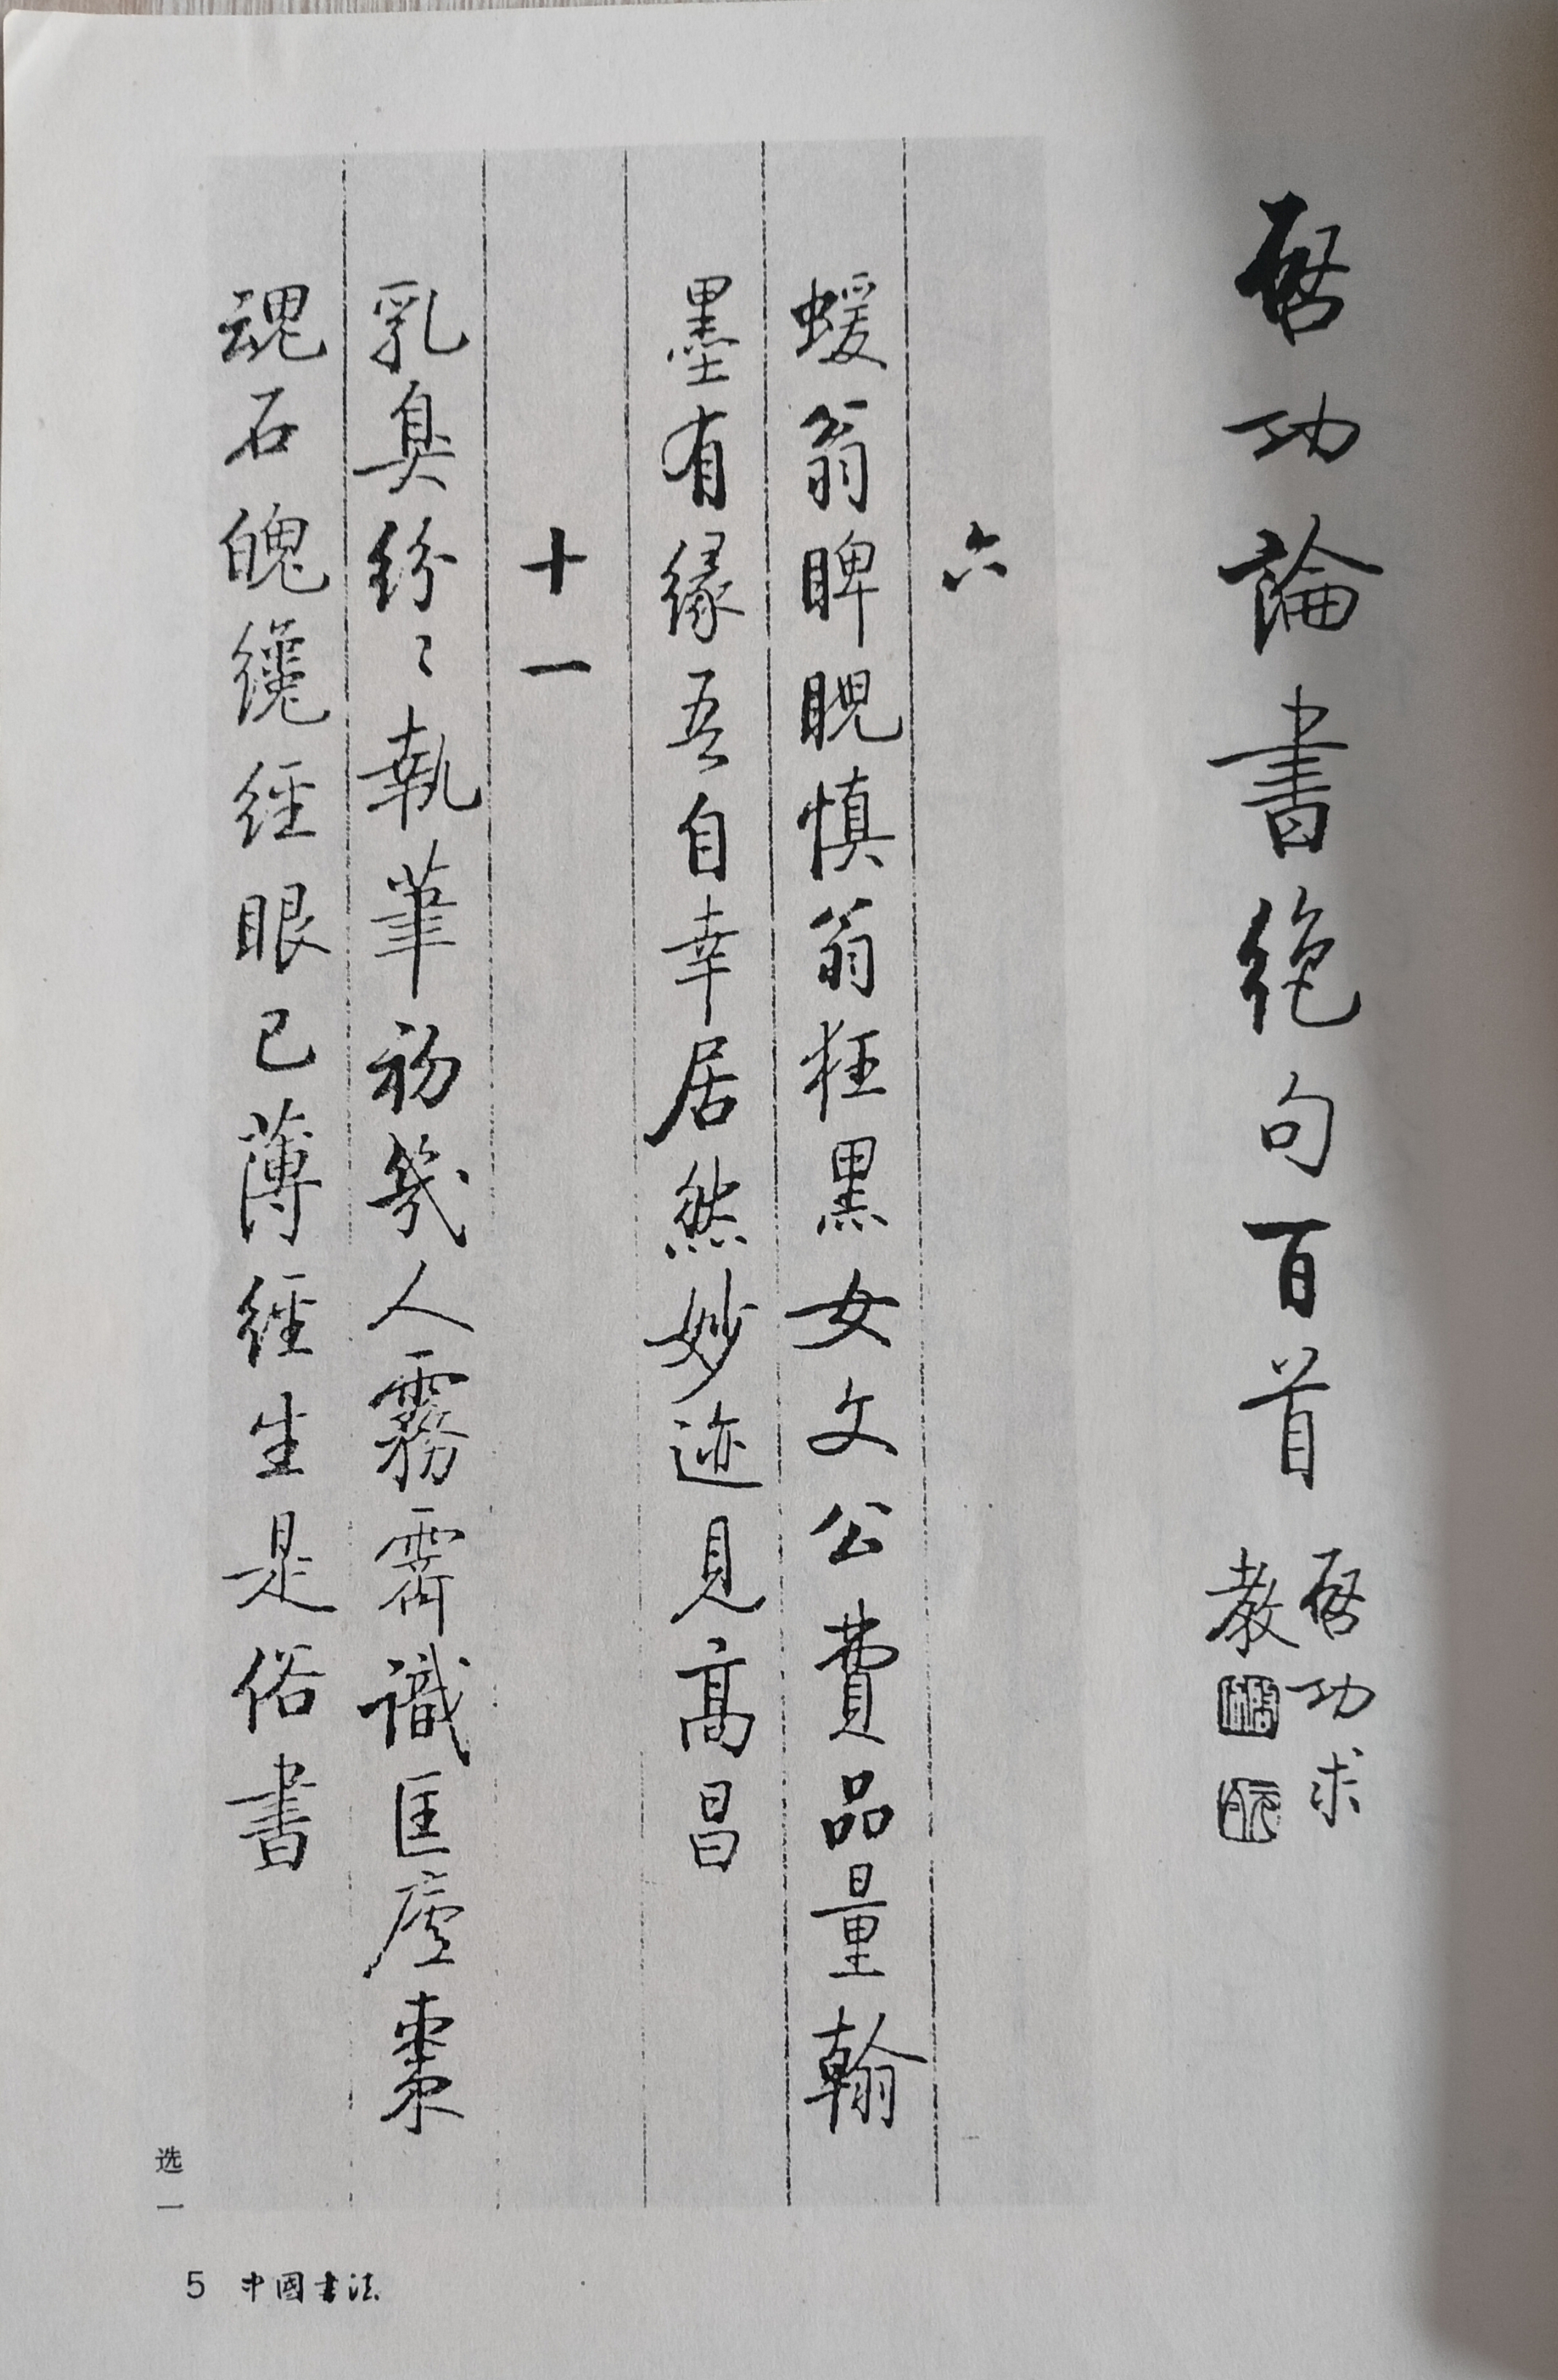 啓功論書絶句百首
啓功求
教
六
蝯翁睥睨慎翁狂黑女文公費品量翰
墨有緣吾自幸居然妙迹見髙昌
十一
乳臭紛〻執筆初幾人霧霽識匡廬棗
魂石魄纔經眼已薄經生是俗書
选一
5 中國书法